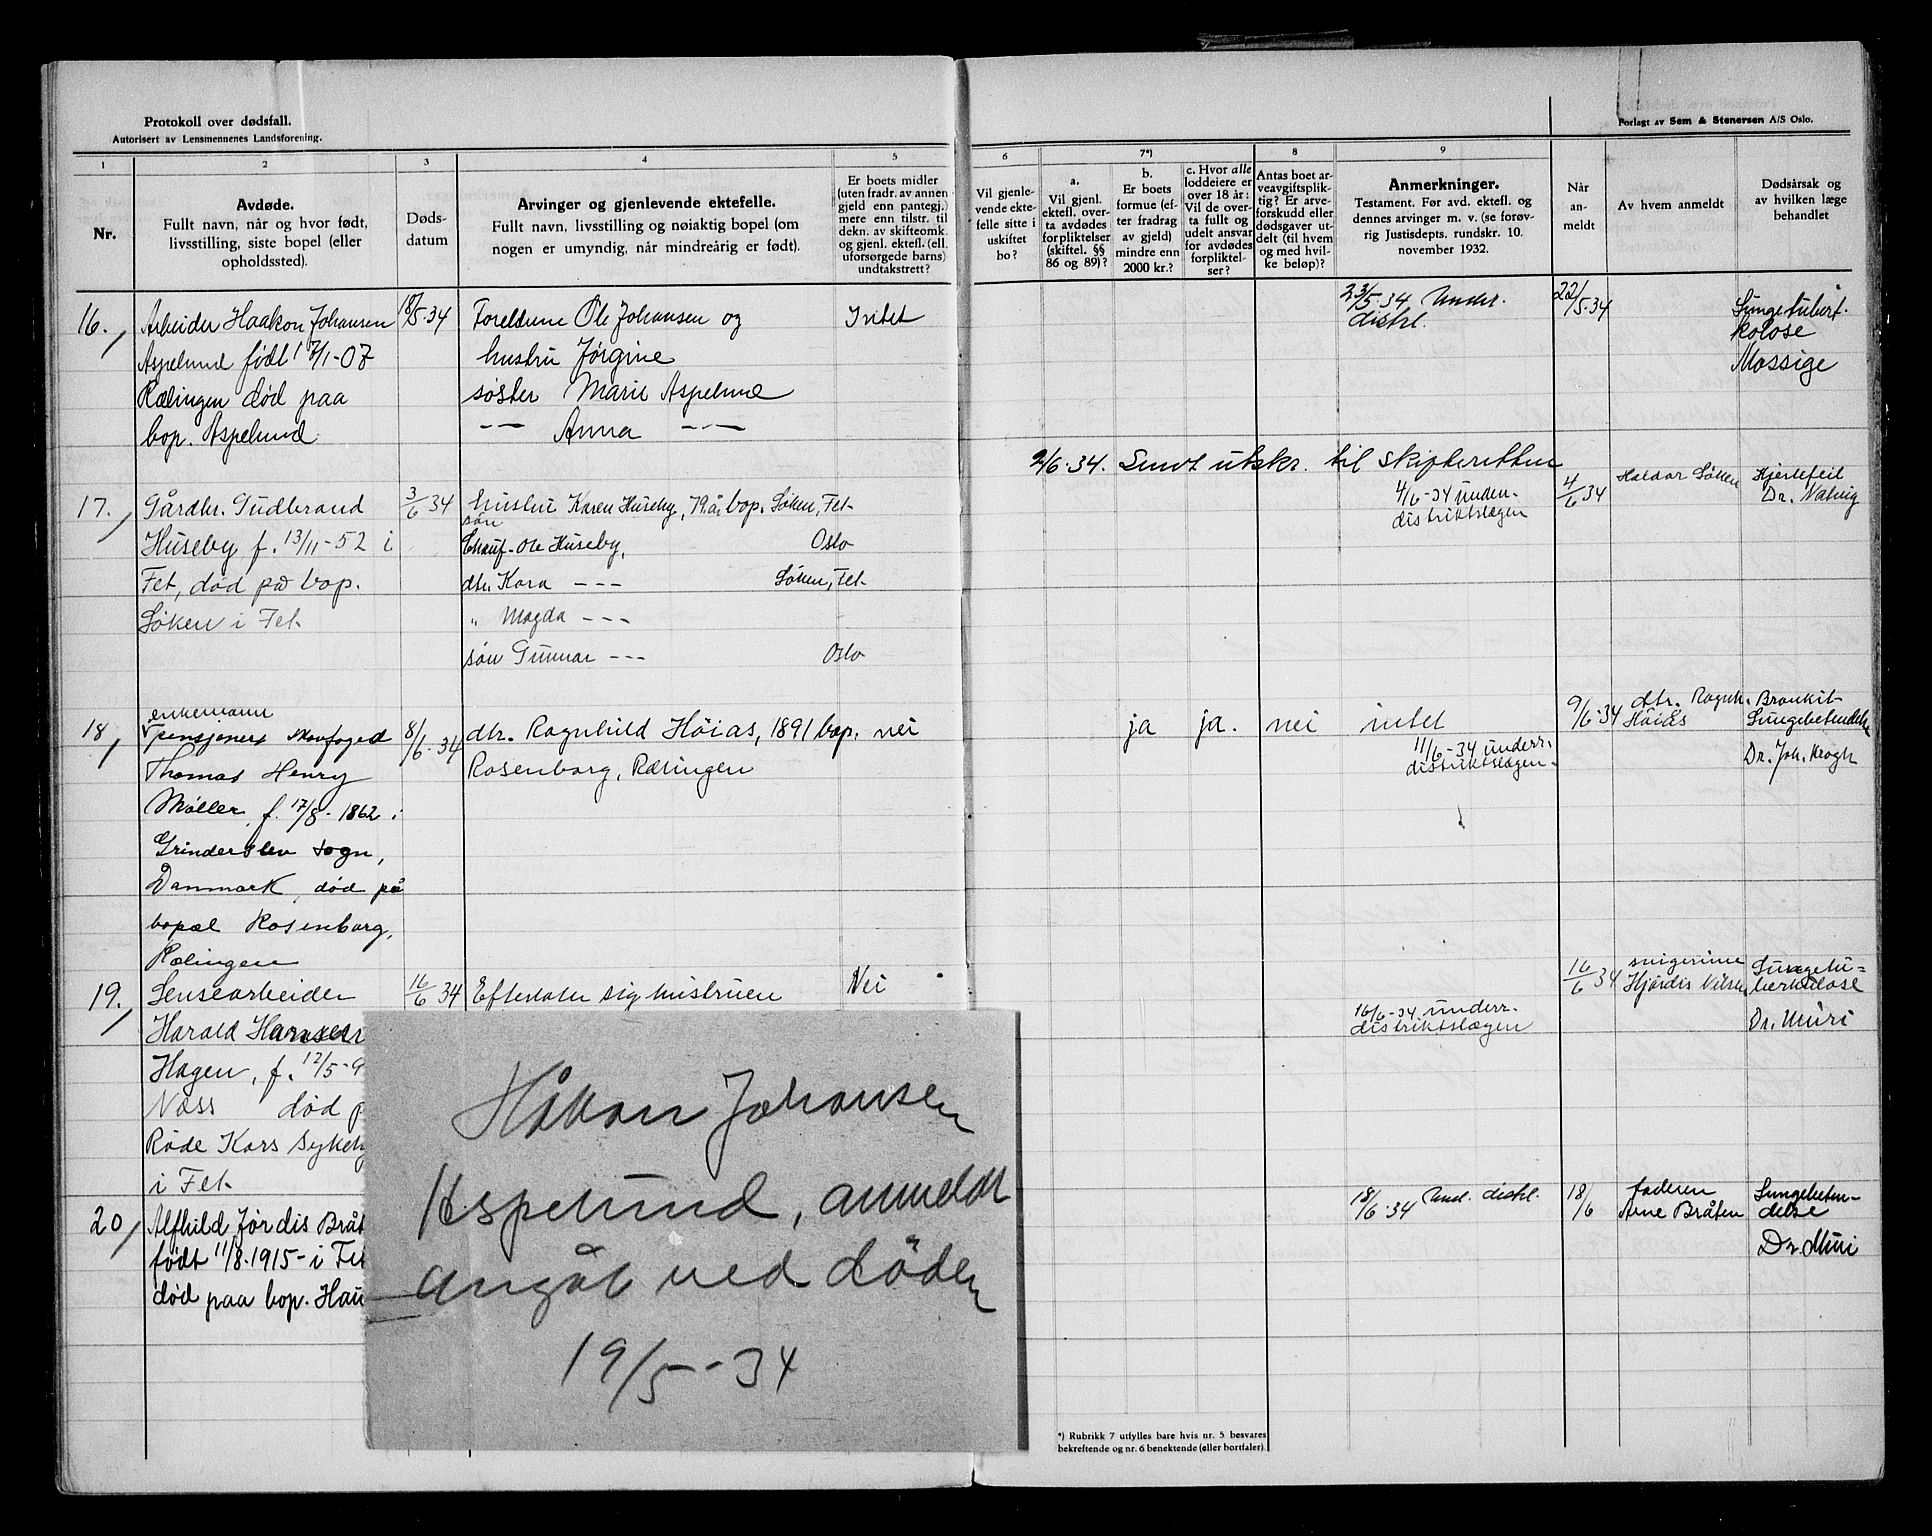 Protokoll over dødsfall.
Autorisert av Lensmennenes Landsforening.
Forlagt av Sem & Stenersen A/S Oslo.
1
2
3
4
5
6
7*)
8
9
Nr.
Avdøde.
Fullt navn, når og hvor født,
livsstilling, siste bopel (eller
opholdssted).
Døds-
datum
Arvinger og gjenlevende ektefelle.
Fullt navn, livsstilling og nøiaktig bopel (om
nogen er umyndig, når mindreårig er født).
Er boets midler
(uten fradr. av annen
gjeld enn pantegj.)
mere enn tilstr. til
dekn. av skifteomk.
og gjenl. ektefl. (ell.
uforsørgede barns)
undtakstrett?
Vil gjenle-
vende ekte-
felle sitte i
uskiftet
bo?
a.
Vil gjenl.
ektefl. over-
ta avdødes
forpliktelser
(skiftel. §§
86 og 89)?
b.
Er boets
formue (ef-
ter fradrag
av gjeld)
mindre enn
2000 kr.?
c. Hvor alle
loddeiere er
over 18 år:
Vil de over-
ta fullt og
udelt ansvar
for avdødes
forpliktel-
ser?
Antas boet ar-
veavgiftsplik-
tig? Er arve-
forskudd eller
dødsgaver ut-
delt (til hvem
og med hvil-
ke beløp)?
Anmerkninger.
Testament. Før avd. ektefl. og
dennes arvinger m. v. (se forøv-
rig Justisdepts. rundskr. 10.
november 1932.
Når
an-
meldt
Av hvem anmeldt
Dødsårsak og
av hvilken læge
behandlet
16.
Arbeider Haakon Johansen
Aspelund født 7/1-07
Rælingen død paa
bop. Aspelund
18/5-34
Foreldrene Ole Johansen og
hustru Jørgine
søster Marie Aspelund
— — Anna — —
Intet
23/5-34 Under.
distrl.
22/5-34
Lungetuber-
kolose
Mossige
2/6-34. Sendt utskr. til skifteretten
17.
Gårdbr. Gudbrand
Huseby f. 13/11-52 i
Fet, død på bop.
Løken i Fet
3/6 34
hustru Karen Huseby, 79 å. bop. Løken, Fet
søn
Chauf. Ole Huseby, Oslo
dtr. Kara - - - Løken, Fet
" Magda - - -
søn Gunnar - - - Oslo
4/6-34 under-
distriktslægen
4/6 34
Halvor Løken
Hjertefeil
Dr. Natvig
18
enkemann
pensjonert skovfoged
Thomas Henry
Møller, f. 17/8-1862 i
Grinderslev sogn,
Danmark, død på
bopæl Rosenborg,
Rælingen
8/6-34
dtr. Ragnhild Höiås, 1891 bop.
Rosenborg, Rælingen
nei
ja
ja.
nei
intet
11/6-34 underr.
distriktslægen
9/6-34
dtr. Ragnh.
Höiås
Bronkit-
Lungebetendelse
Dr. Joh. Krogh
19.
Lensearbeider
Harald Hansen
Hagen, f. 12/5-9
Næss død p
Røde Kors Sykeh
i Fet
16/6 34
Efterlater sig hustruen
Nei
16/6-34 underr.
distriktslægen
16/6 34
svigerinne
Hjørdis Nilsen
Lungetu=
berkulose
Dr. Muri
20
Alfhild Jørdis Bråt
født 11/8.1915- i Fet
død paa bop. Hau
18/6-34 Und. distrl.
18/6
faderen
Arne Bråten
Lungebeten-
delse
Dr. Muri
Håkon Johansen
Aspelund, anmeldt
angåt ved døden
19/5-34
*) Rubrikk 7 utfylles bare hvis nr. 5 besvares
bekreftende og nr. 6 benektende (eller bortfaler).